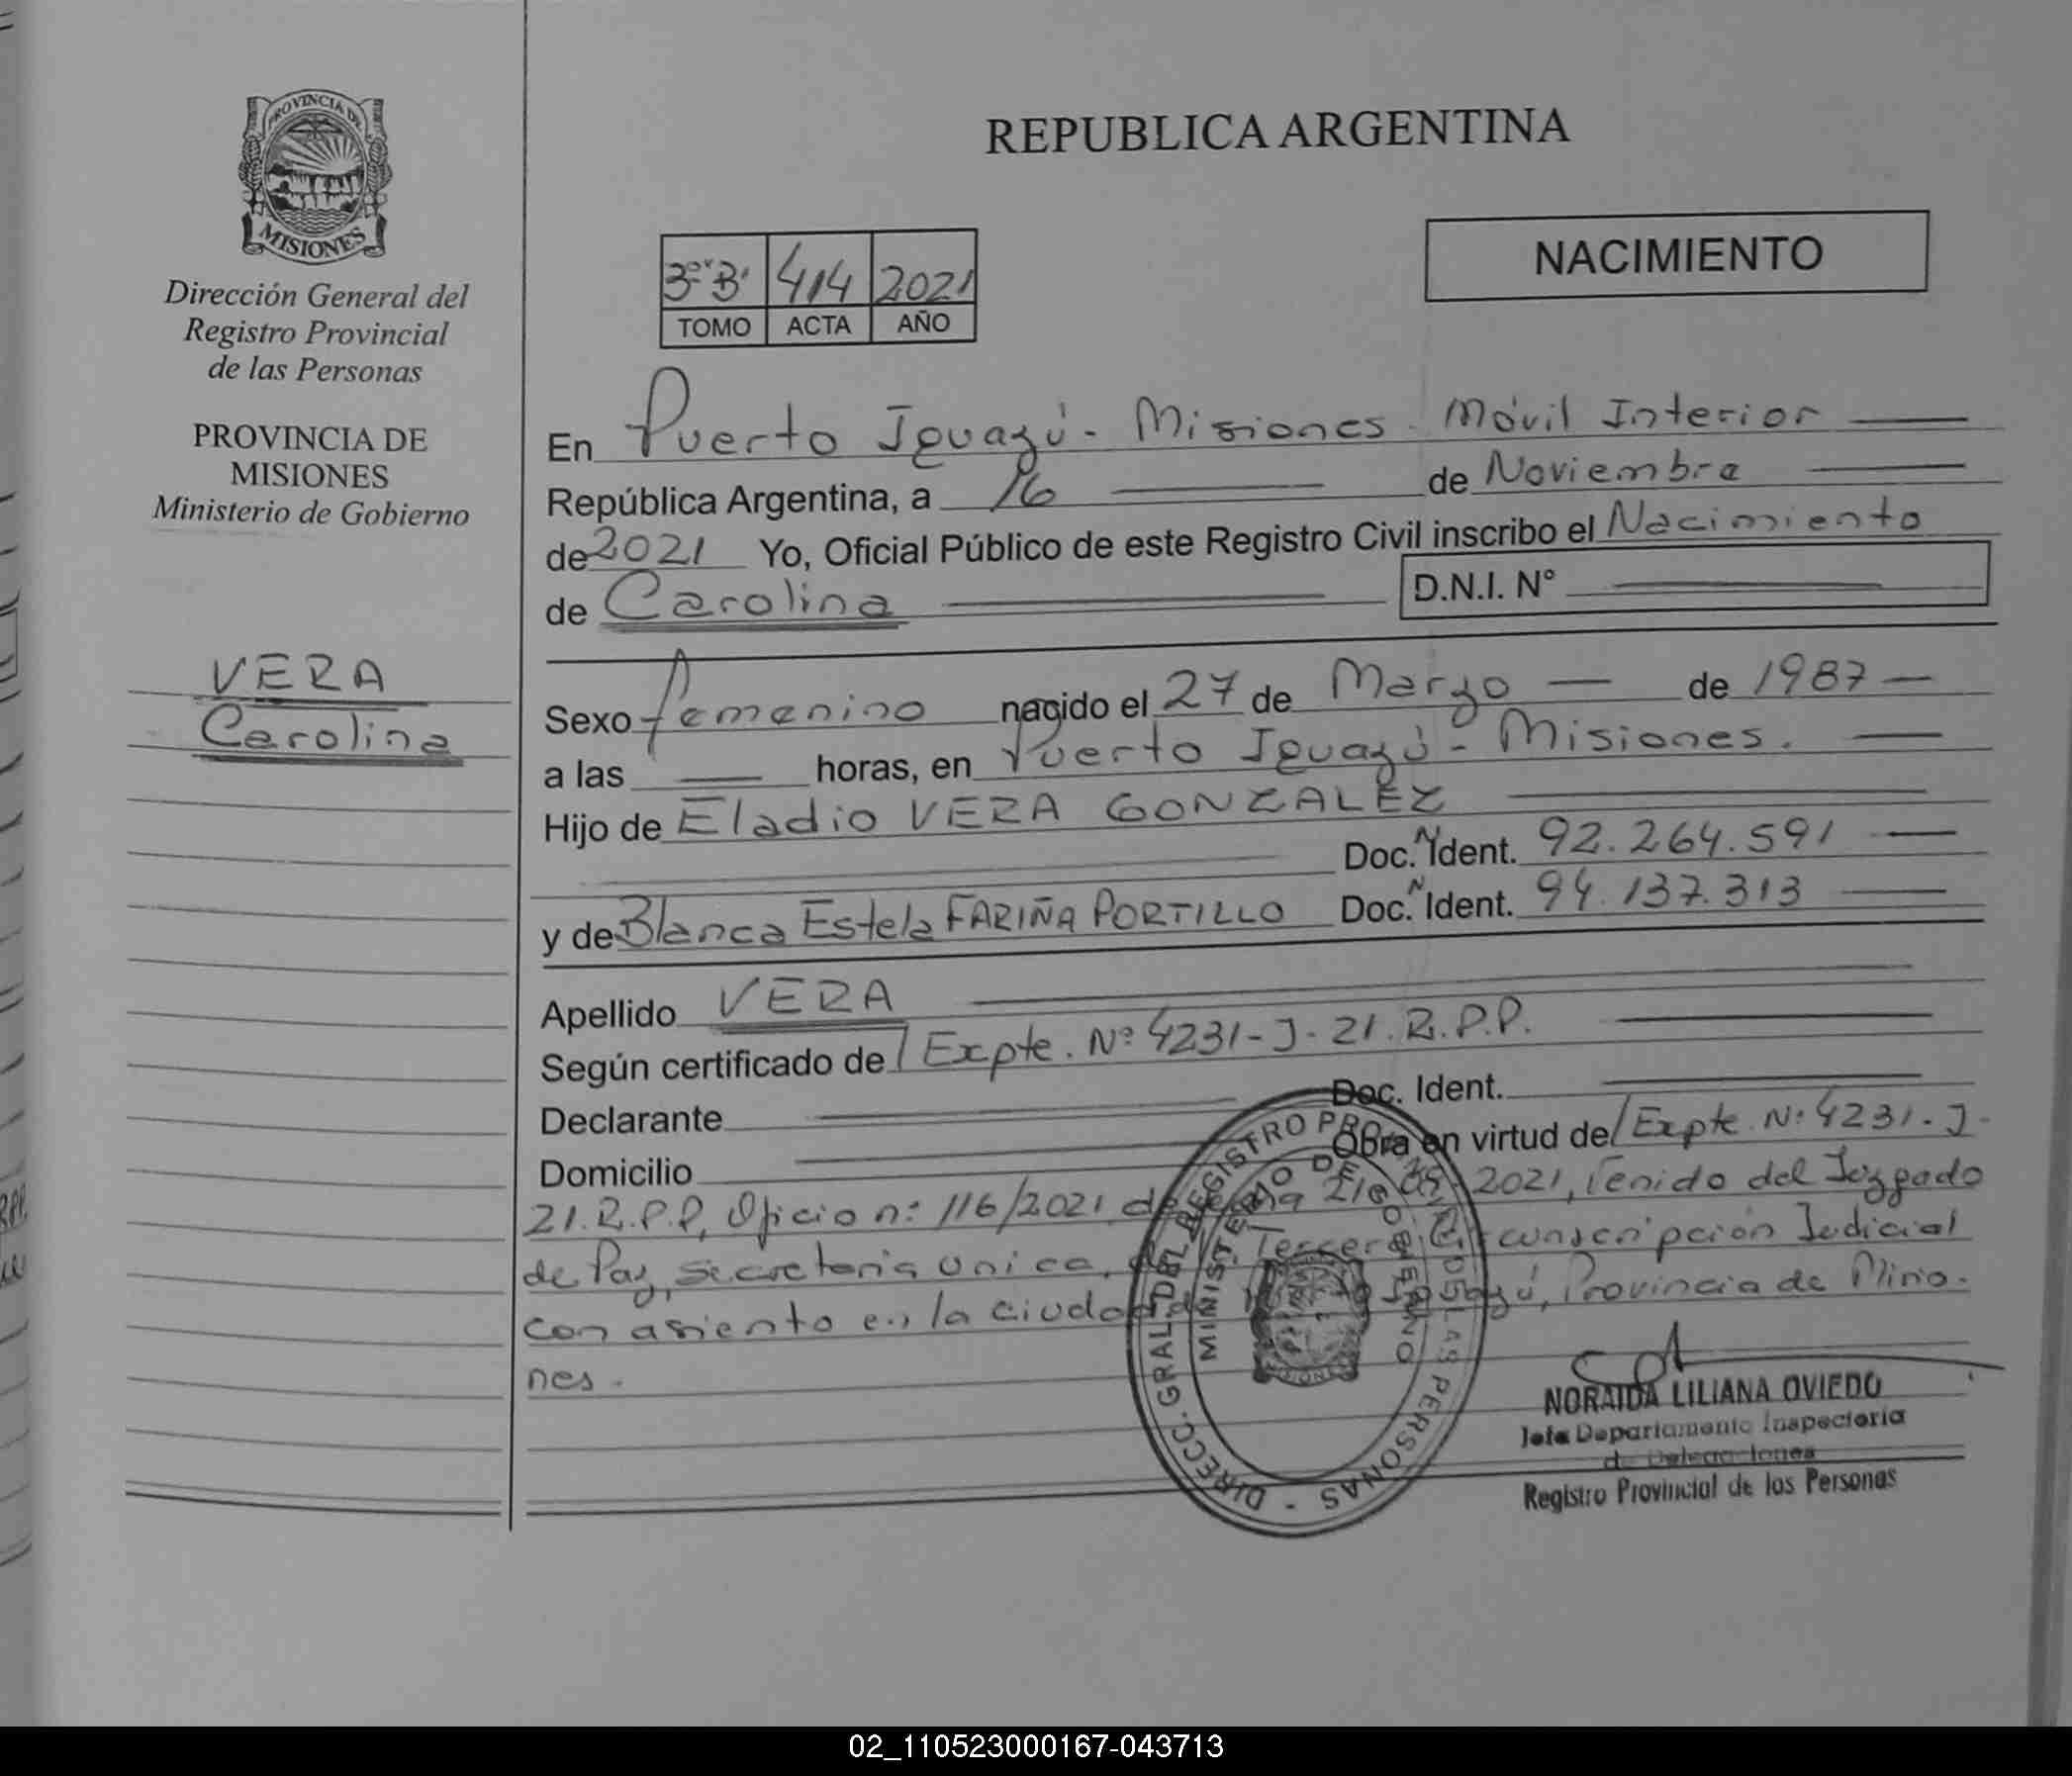 PROVINCIA DE
MISIONES
Dirección General del
Registro Provincial
de las Personas
PROVINCIA DE
MISIONES
Ministerio de Gobierno
VERA
Carolina
REPUBLICA ARGENTINA
3º "B" 414 2021
TOMO ACTA AÑO
NACIMIENTO
En Puerto Iguazú - Misiones - Móvil Interior
República Argentina, a 16 de Noviembre
de 2021 Yo, Oficial Público de este Registro Civil inscribo el Nacimiento
de Carolina D.N.I. N°
Sexo femenino nacido el 27 de Marzo de 1987
a las horas, en Puerto Iguazú - Misiones.
Hijo de Eladio VERA GONZALEZ
Doc. N Ident. 92.264.591
y de Blanca Estela FARIÑA PORTILLO Doc. N Ident. 94.137.313
Apellido VERA
Según certificado de / Expte. Nº 4231-J-21.R.P.P.
Declarante Doc. Ident.
Domicilio Obra en virtud de / Expte. Nº 4231-J-
21.R.P.P, Oficio nº 116/2021 de 2021, venido del Juzgado
de Paz, secretaria unica, Tercera Circunscripción Judicial
con asiento en la ciudad Iguazú, Provincia de Misio-
nes.
DIRECC. GRAL. DEL REGISTRO PROVINCIAL DE LAS PERSONAS -
MINISTERIO DE GOBIERNO
NORAIDA LILIANA OVIEDO
Jefa Departamento Inspectoría
de Delegaciones
Registro Provincial de las Personas
02_110523000167-043713